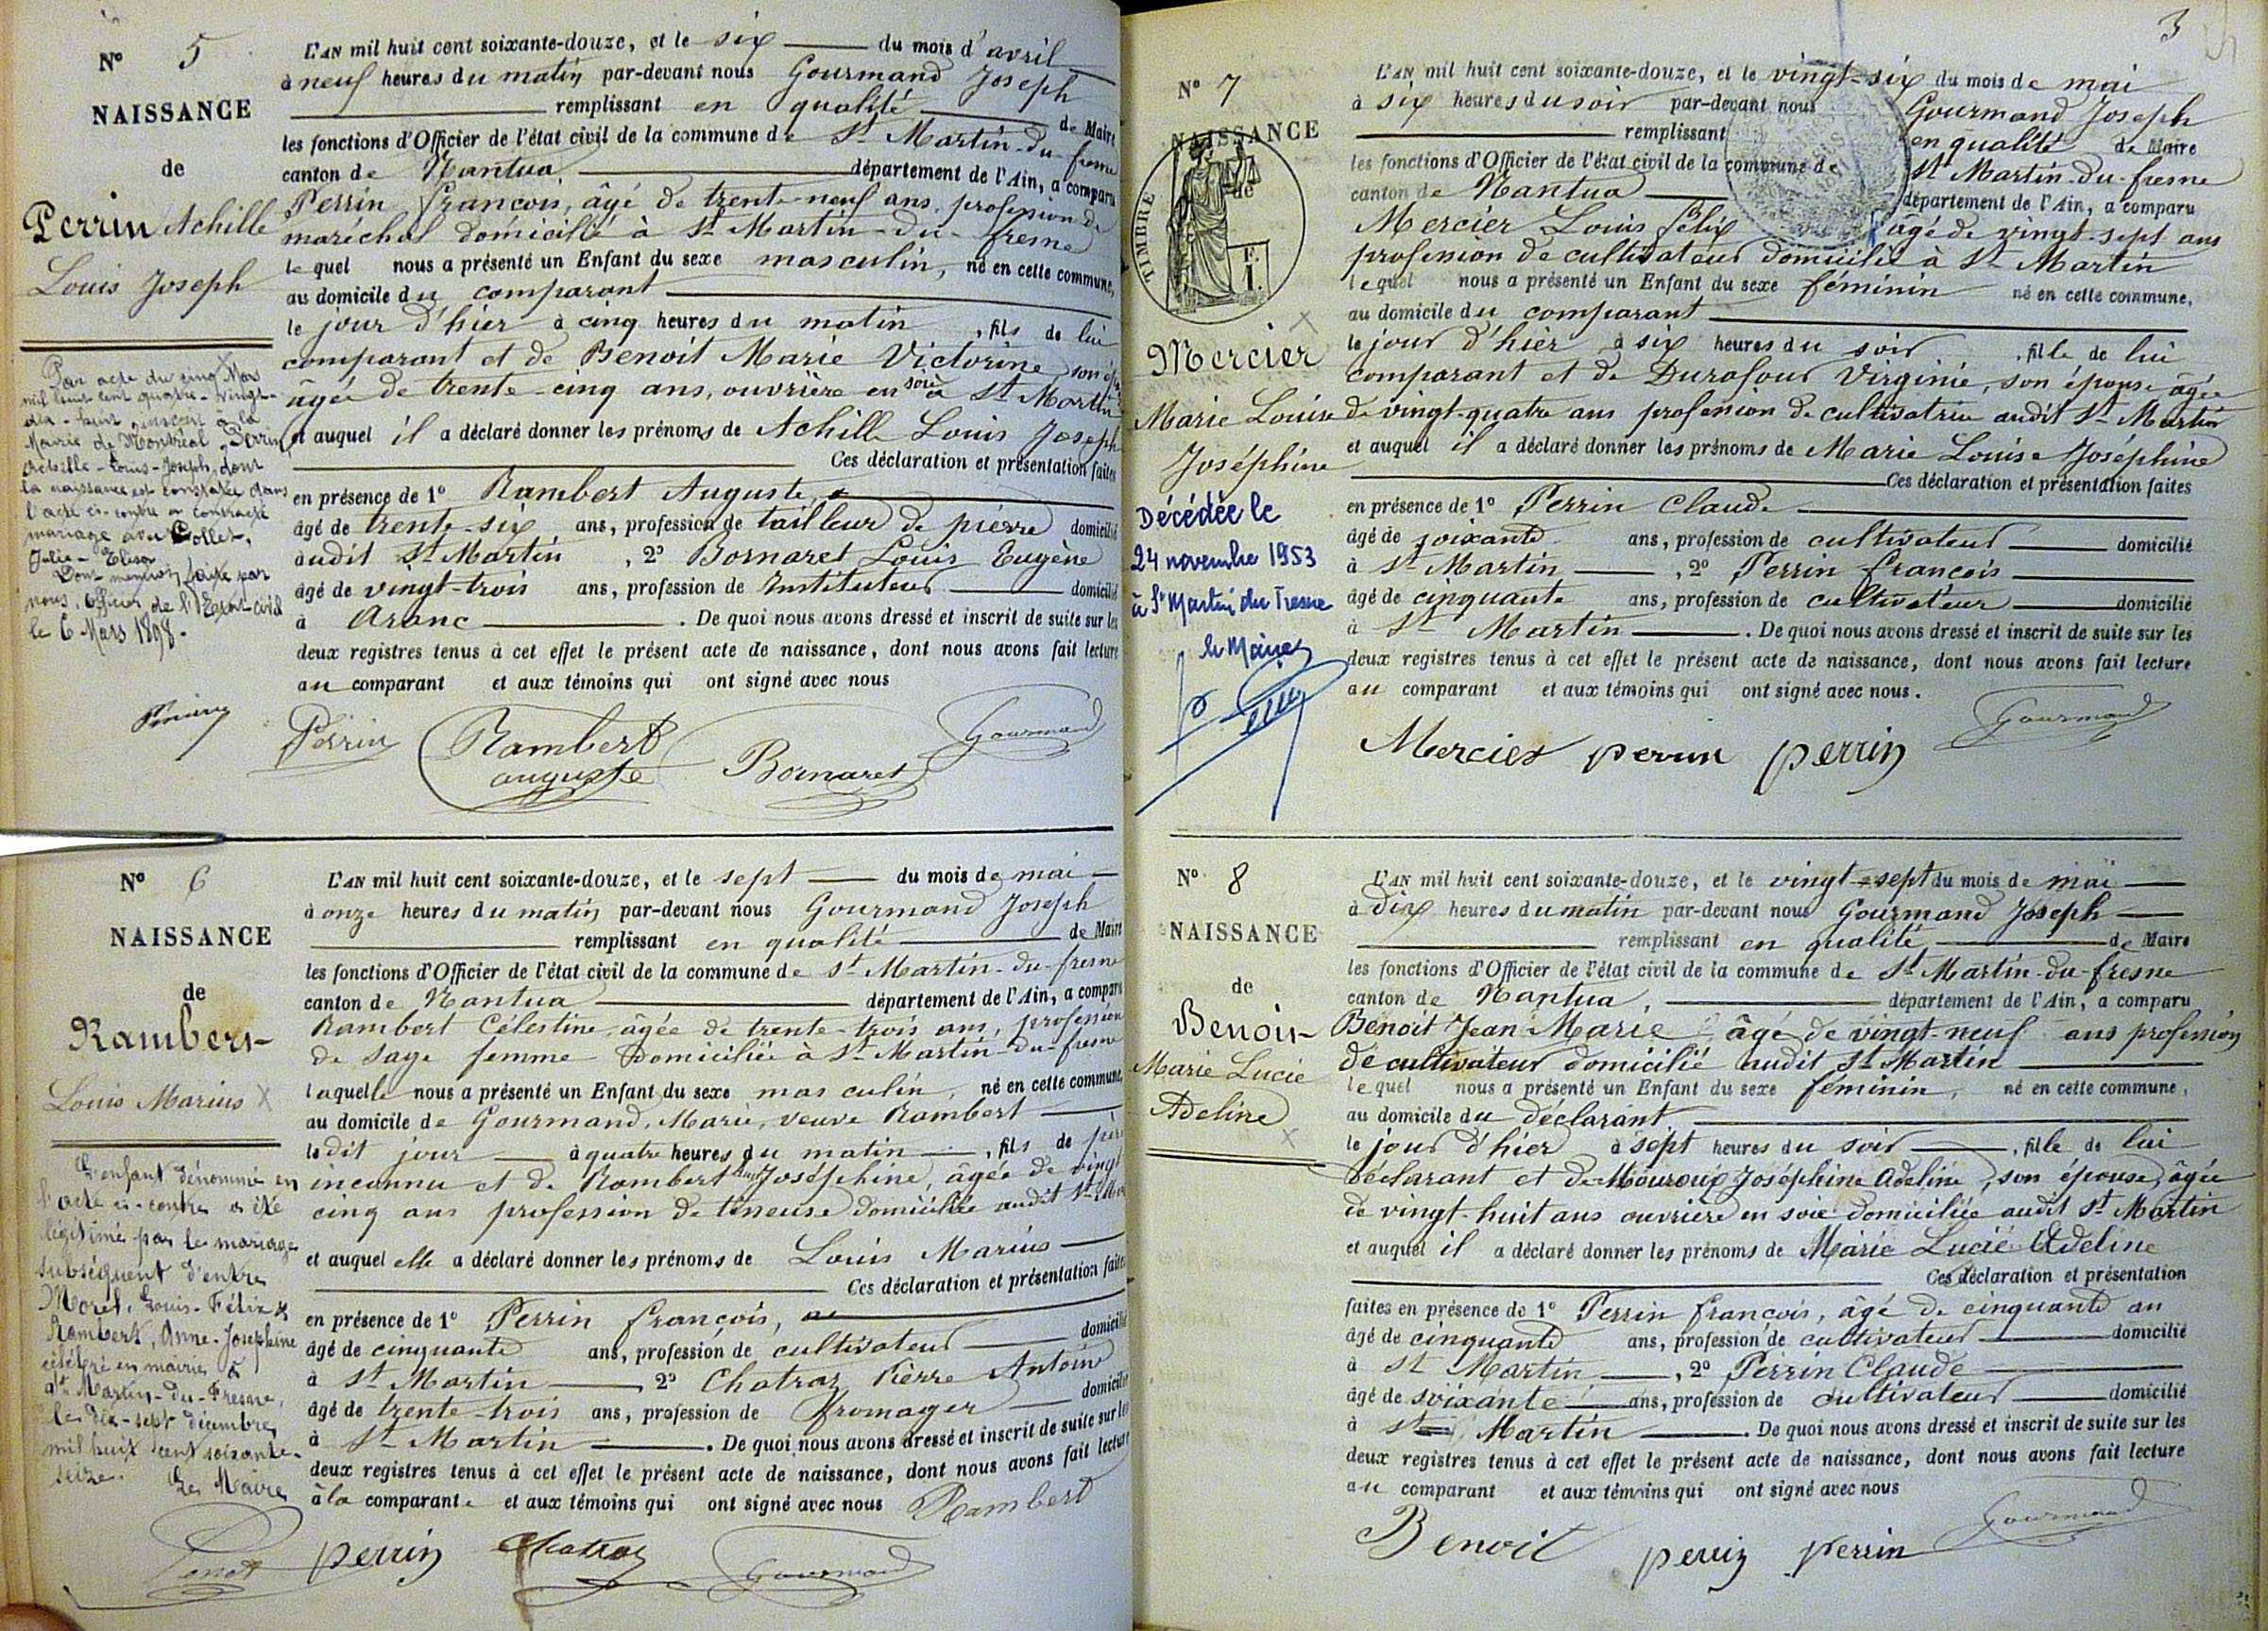 N° 5
NAISSANCE
de
Perrin Achille
Louis Joseph
Par acte du cinq Mars
mil huit cent quatre-vingt-
dix-huit inscrit à la
Mairie de Montréal Perrin
Achille-Louis-Joseph, dont
la naissance est constatée dans
l'acte ci-contre a contracté
mariage avec Collet,
Julie-Elisa
Dont mention faite par
nous, officier de l'Etat-civil
le 6 Mars 1898.
L'AN mil huit cent soixante-douze, et le six du mois d'avril
à neuf heures du matin par-devant nous Gourmand Joseph
remplissant en qualité de Maire
les fonctions d'Officier de l'état civil de la commune de St Martin-du-fresne
canton de Nantua département de l'Ain, a comparu
Perrin françois, âgé de trente-neuf ans, profession de
maréchal domicilié à St Martin-du-fresne
lequel nous a présenté un Enfant du sexe masculin, né en cette commune,
au domicile du comparant
le jour d'hier à cinq heures du matin, fils de lui
comparant et de Benoit Marie Victorine son
âgée de trente-cinq ans, ouvrière en soie à St Martin
et auquel il a déclaré donner les prénoms de Achille Louis Joseph
Ces déclaration et présentation faites
en présence de 1° Rambert Auguste
âgé de trente-six ans, profession de tailleur de pierre domicilié
audit St Martin, 2° Bornaret Louis Eugène
âgé de vingt-trois ans, profession de Instituteur domicilié
à Aranc. De quoi nous avons dressé et inscrit de suite sur les
deux registres tenus à cet effet le présent acte de naissance, dont nous avons fait lecture
au comparant et aux témoins qui ont signé avec nous
Perrin Rambert auguste Bornaret Gourmand
N° 6
NAISSANCE
de
Rambert
Louis Marius
L'enfant dénommé en
l'acte ci-contre a été
légitimé par le mariage
subséquent d'entre
Morel, Louis-Félix &
Rambert, Anne-Josephine
célébré en mairie à
St Martin-du-Fresne,
le dix-sept décembre
mil huit cent soixante-
seize.
Le Maire
L'AN mil huit cent soixante-douze, et le sept du mois de mai
à onze heures du matin par-devant nous Gourmand Joseph
remplissant en qualité de Maire
les fonctions d'Officier de l'état civil de la commune de St Martin-du-fresne
canton de Nantua département de l'Ain, a comparu
Rambert Célestine, âgée de trente-trois ans, profession
de sage femme domiciliée à St Martin-du-fresne
laquelle nous a présenté un Enfant du sexe masculin, né en cette commune,
au domicile de Gourmand, Marie, veuve Rambert
ledit jour à quatre heures du matin, fils de père
inconnu et de Rambert Josephine, âgée de vingt
cinq ans profession de tisseuse domiciliée audit St
et auquel elle a déclaré donner les prénoms de Louis Marius
Ces déclaration et présentation faites
en présence de 1° Perrin françois,
âgé de cinquante ans, profession de cultivateur domicilié
à St Martin 2° Chatraz Pierre Antoine
âgé de trente-trois ans, profession de fromager domicilié
à St Martin. De quoi nous avons dressé et inscrit de suite sur les
deux registres tenus à cet effet le présent acte de naissance, dont nous avons fait lecture
à la comparante et aux témoins qui ont signé avec nous Rambert
perrin Chatraz Gourmand
3
N° 7
NAISSANCE
de
TIMBRE
F.
1.
Mercier
Marie Louise
Joséphine
Décédée le
24 novembre 1953
à St Martin du Fresne
le Maire
L'AN mil huit cent soixante-douze, et le vingt-six du mois de mai
à six heures du soir par-devant nous Gourmand Joseph
remplissant en qualité de Maire
les fonctions d'Officier de l'état civil de la commune de St Martin-du-fresne
canton de Nantua département de l'Ain, a comparu
Mercier Louis félix âgé de vingt-sept ans
profession de cultivateur domicilié à St Martin
lequel nous a présenté un Enfant du sexe féminin né en cette commune,
au domicile du comparant
le jour d'hier à six heures du soir, fille de lui
comparant et de Durafour Virginie, son épouse âgée
de vingt-quatre ans profession de cultivatrice audit St Martin
et auquel il a déclaré donner les prénoms de Marie Louise Joséphine
Ces déclaration et présentation faites
en présence de 1° Perrin Claude
âgé de soixante ans, profession de cultivateur domicilié
à St Martin, 2° Perrin françois
âgé de cinquante ans, profession de cultivateur domicilié
à St Martin. De quoi nous avons dressé et inscrit de suite sur les
deux registres tenus à cet effet le présent acte de naissance, dont nous avons fait lecture
au comparant et aux témoins qui ont signé avec nous.
Mercier perrin perrin Gourmand
N° 8
NAISSANCE
de
Benoit
Marie Lucie
Adeline
L'AN mil huit cent soixante-douze, et le vingt-sept du mois de mai
à dix heures du matin par-devant nous Gourmand Joseph
remplissant en qualité de Maire
les fonctions d'Officier de l'état civil de la commune de St Martin-du-fresne
canton de Nantua, département de l'Ain, a comparu
Benoit Jean Marie âgé de vingt-neuf ans profession
de cultivateur domicilié audit St Martin
lequel nous a présenté un Enfant du sexe féminin, né en cette commune,
au domicile du déclarant
le jour d'hier à sept heures du soir, fille de lui
déclarant et de Mouroux Joséphine Adeline, son épouse, âgée
de vingt-huit ans ouvrière en soie domiciliée audit St Martin
et auquel il a déclaré donner les prénoms de Marie Lucie Adeline
Ces déclaration et présentation
faites en présence de 1° Perrin françois, âgé de cinquante an
âgé de cinquante ans, profession de cultivateur domicilié
à St Martin, 2° Perrin Claude
âgé de soixante ans, profession de cultivateur domicilié
à St Martin. De quoi nous avons dressé et inscrit de suite sur les
deux registres tenus à cet effet le présent acte de naissance, dont nous avons fait lecture
au comparant et aux témoins qui ont signé avec nous
Benoit perrin perrin Gourmand